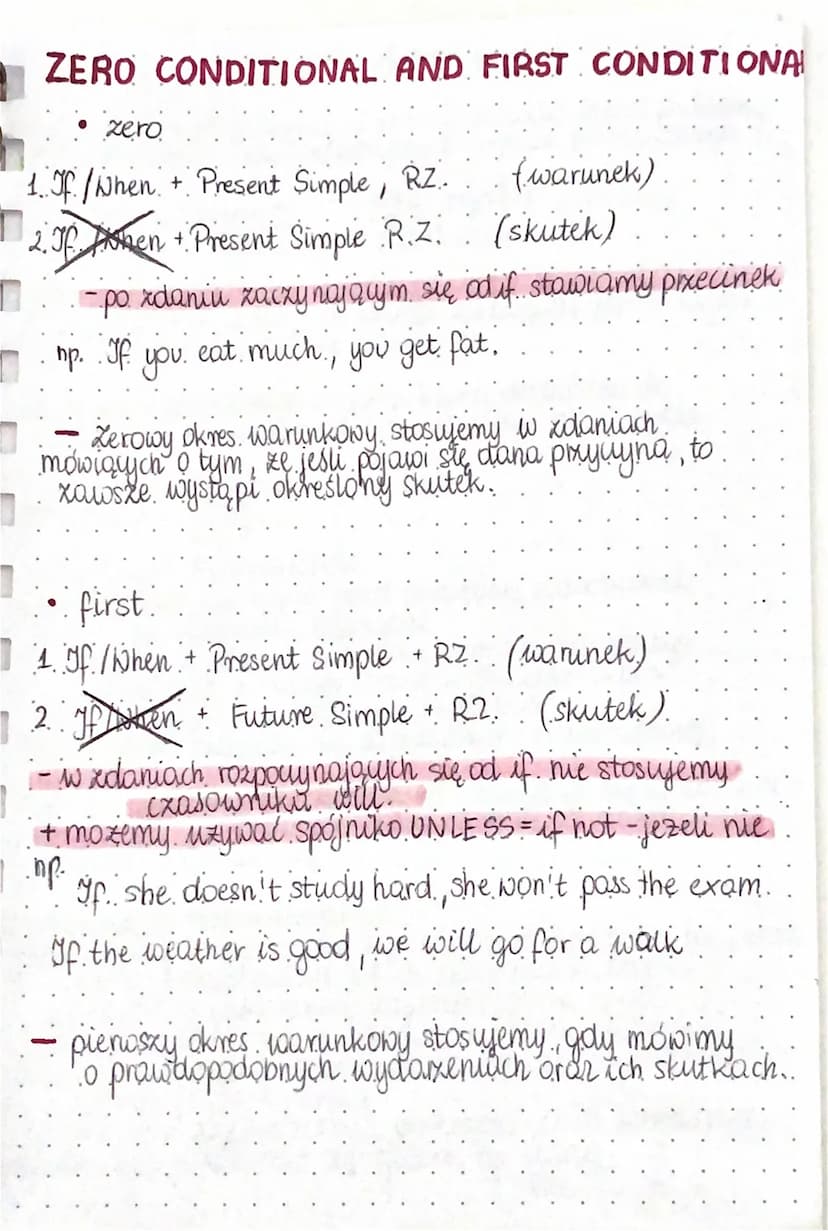 ZERO CONDITIONAL AND FIRST CONDITIONA
• zero
1. If/When + Present Simple, RZ. (warunek)
2. If/When + Present Simple R.Z. (skutek)
- po zdaniu zaczynającym się od if stawiamy przecinek
np. If you eat much, you get fat.
- Zerowy okres warunkowy stosujemy w zdaniach
mówiących o tym, że jeśli pojawi się dana przyczyna, to
zawsze wystąpi określony skutek.
• first
1. If/When + Present Simple + RZ. (warunek)
2. If/When + Future Simple + RZ. (skutek)
- w zdaniach rozpoczynających się od if nie stosujemy
czasownika will.
+ możemy używać spójnika UNLESS = if not - jeżeli nie
np.
If she doesn't study hard, she won't pass the exam.
If the weather is good, we will go for a walk
- pierwszy okres warunkowy stosujemy, gdy mówimy
o prawdopodobnych wydarzeniach oraz ich skutkach.